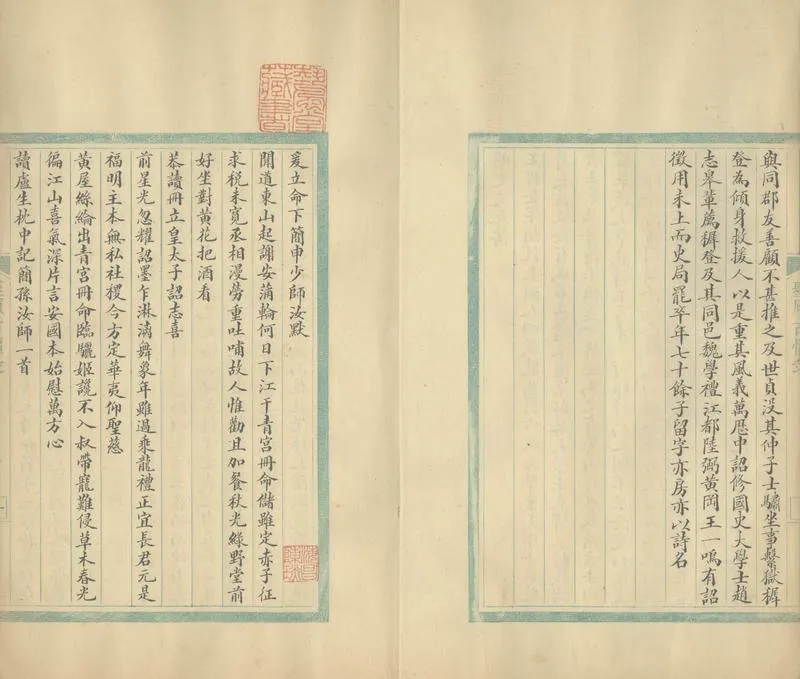 與同郡友善顧不甚推之及世貞没其仲子士驌坐事繫獄穉
登為傾身救援人以是重其風義萬厯中詔修國史大學士趙
志皋輩薦穉登及其同邑魏學禮江都陸弼黃岡王一鳴有詔
徵用未上而史局罷卒年七十餘子留字亦房亦以詩名
藏書
爰立命下簡申少師汝默
聞道東山起謝安蒲輪何日下江干青宮冊命儲雖定赤子征
求税未寛丞相漫勞重吐哺故人惟勸且加餐秋光綠野堂前
好坐對黃花把酒看
恭讀冊立皇太子詔志喜
前星光忽耀詔墨乍淋漓舞象年雖過乘龍禮正宜長君元是
福明主本無私社稷今方定華夷仰聖慈
黃屋絲綸出青宮冊命臨驪姬讒不入叔帶寵難侵草木春光
徧江山喜氣深片言安國本始慰萬方心
讀盧生枕中記簡孫汝師一首